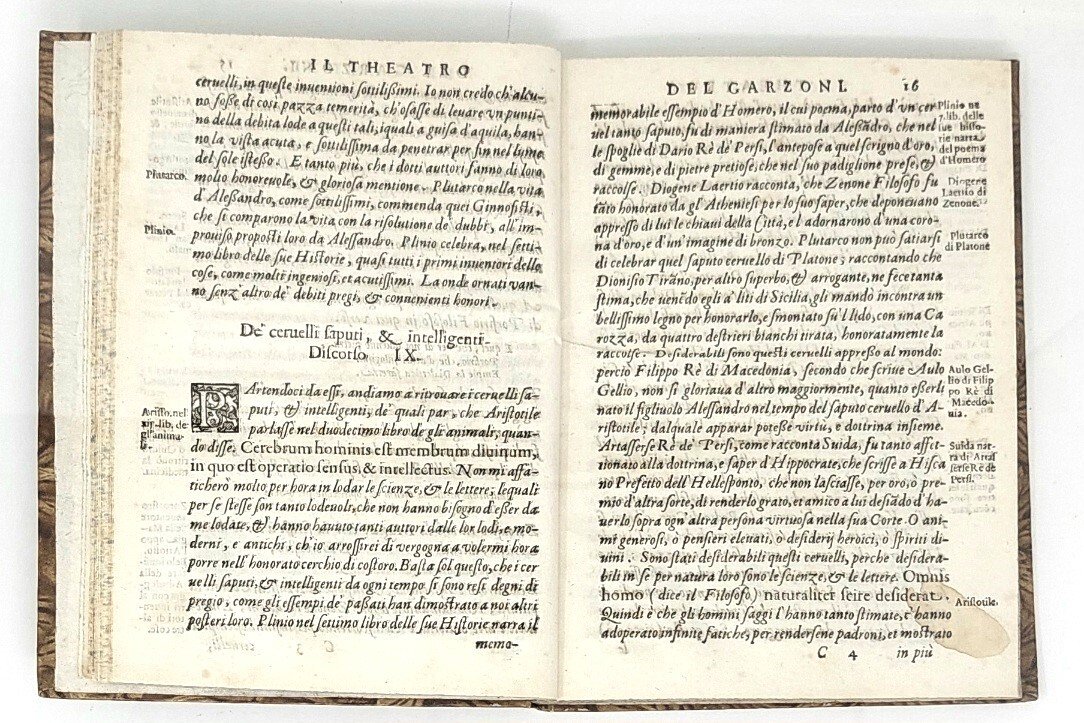 IL THEATRO
ceruelli, in queste inuentioni sottilissimi. Io non credo ch'alcu-
no fosse di così pazza temerità, ch'osasse di leuare vn punti-
no della debita lode a questi tali, iquali a guisa d'aquila, han-
no la vista acuta, e sottilissima da penetrar per fin nel lume
del sole istesso. E tanto più, che i dotti auttori fanno di loro
molto honoreuole, & gloriosa mentione. Plutarco nella vita
d'Alessandro, come sottilissimi, commenda quei Ginnosisti,
che si comparono la vita con la risolutione de' dubbi, all'im-
prouiso proposti loro da Alessandro. Plinio celebra, nel setti-
mo libro delle sue Historie, quasi tutti i primi inuentori delle
cose, come molti ingeniosi, et acutissimi. La onde ornati van-
no senz'altro de' debiti pregi, & conuenienti honori.
Plutarco.
Plinio.
De' ceruelli saputi, & intelligenti.
Discorso. IX.
PArtendoci da essi, andiamo a ritrouare i ceruelli sa-
puti, & intelligenti, de' quali par, che Aristotile
parlasse nel duodecimo libro de gli animali, quan-
do disse. Cerebrum hominis est membrum diuinum,
in quo est operatio sensus, & intellectus. Non mi affa-
ticherò molto per hora in lodar le scienze, & le lettere; lequali
per se stesse son tanto lodeuoli, che non hanno bisogno d'esser da
me lodate, & hanno hauuto tanti auttori dalle lor lodi, e mo-
derni, e antichi, ch'io arrossirei di vergogna a volermi hora
porre nell'honorato cerchio di costoro. Basta sol questo, che i cer
uelli saputi, & intelligenti da ogni tempo si sono resi degni di
pregio, come gli essempi de' passati han dimostrato a noi altri
posteri loro. Plinio nel settimo libro delle sue Historie narra il
Aristo. nel
xij. lib. de
gl'anima
li.
C 3
memo-
DEL GARZONI. 16
memorabile essempio d'Homero, il cui poema, parto d'vn cer
uel tanto saputo, fu di maniera stimato da Alessãdro, che nel
le spoglie di Dario Rè de' Persi, l'antepose a quel scrigno d'oro,
di gemme, e di pietre pretiose, che nel suo padiglione prese, &
raccolse. Diogene Laertio racconta, che Zenone Filosofo fu
tãto honorato da gl'Atheniesi per lo suo saper, che deponeuano
appresso di lui le chiaui della Città, e l'adornarono d'una coro-
na d'oro, e d'un'imagine di bronzo. Plutarco non può satiarsi
di celebrar quel saputo ceruello di Platone; raccontando che
Dionisio Tirãno, per altro superbo, & arrogante, ne fece tanta
stima, che uenẽdo egli a' liti di Sicilia, gli mandò incontra un
bellissimo legno per honorarlo, e smontato su'l lido, con una Ca
rozza, da quattro destrieri bianchi tirata, honoratamente la
raccolse. Desiderabili sono questi ceruelli appresso al mondo:
perciò Filippo Rè di Macedonia, secondo che scriue Aulo
Gellio, non si gloriaua d'altro maggiormente, quanto esserli
nato il figliuolo Alessandro nel tempo del saputo ceruello d'A-
ristotile; dalquale apparar potesse virtù, e dottrina insieme.
Artasserse Rè de' Persi, come racconta Suida, fu tanto affet-
tionato alla dottrina, e saper d'Hippocrate, che scrisse a Hisca
no Prefetto dell'Hellesponto, che non lasciasse, per oro, ò pre-
mio d'altra sorte, di renderlo grato, et amico a lui desiãdo d'ha-
uerlo sopra ogn'altra persona virtuosa nella sua Corte. O ani-
mi generosi, ò pensieri eleuati, ò desiderij heroici, ò spiriti di-
uini. Sono stati desiderabili questi ceruelli, perche desidera-
bili in se per natura loro sono le scienze, & le lettere. Omnis
homo (dice il Filosofo) naturaliter scire desiderat.
Quindi è che gli homini saggi l'hanno tanto stimate, e hanno
adoperato infinite fatiche, per rendersene padroni, et mostrato
Plinio ne
7. lib. delle
sue histo-
rie narra
del poema
d'Homero
Diogene
Laertio di
Zenone.
Plutarco
di Platone
Aulo Gel-
lio di Filip
po Rè di
Macedo-
nia.
Suida nar-
ra di Artas
serse Rè de
Persi.
Aristotile.
C 4
in più